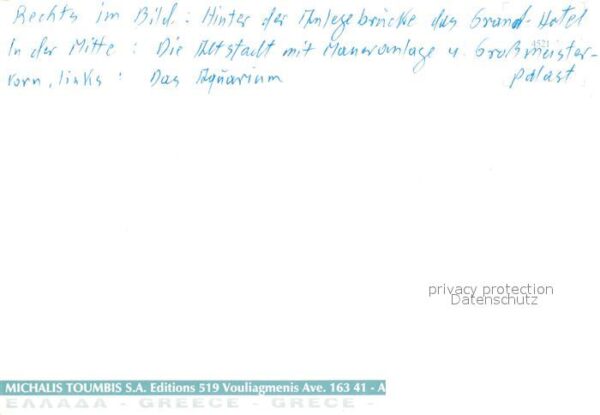 Rechts im Bild: Hinter der Anlegebrücke das Grand-Hotel
In der Mitte: Die Altstadt mit Maueranlage u. Großmeister-
4521
vorn, links: Das Aquarium palast
privacy protection
Datenschutz
MICHALIS TOUMBIS S.A. Editions 519 Vouliagmenis Ave. 163 41 - A
ΕΛΛΑΔΑ - GREECE - GRECE -